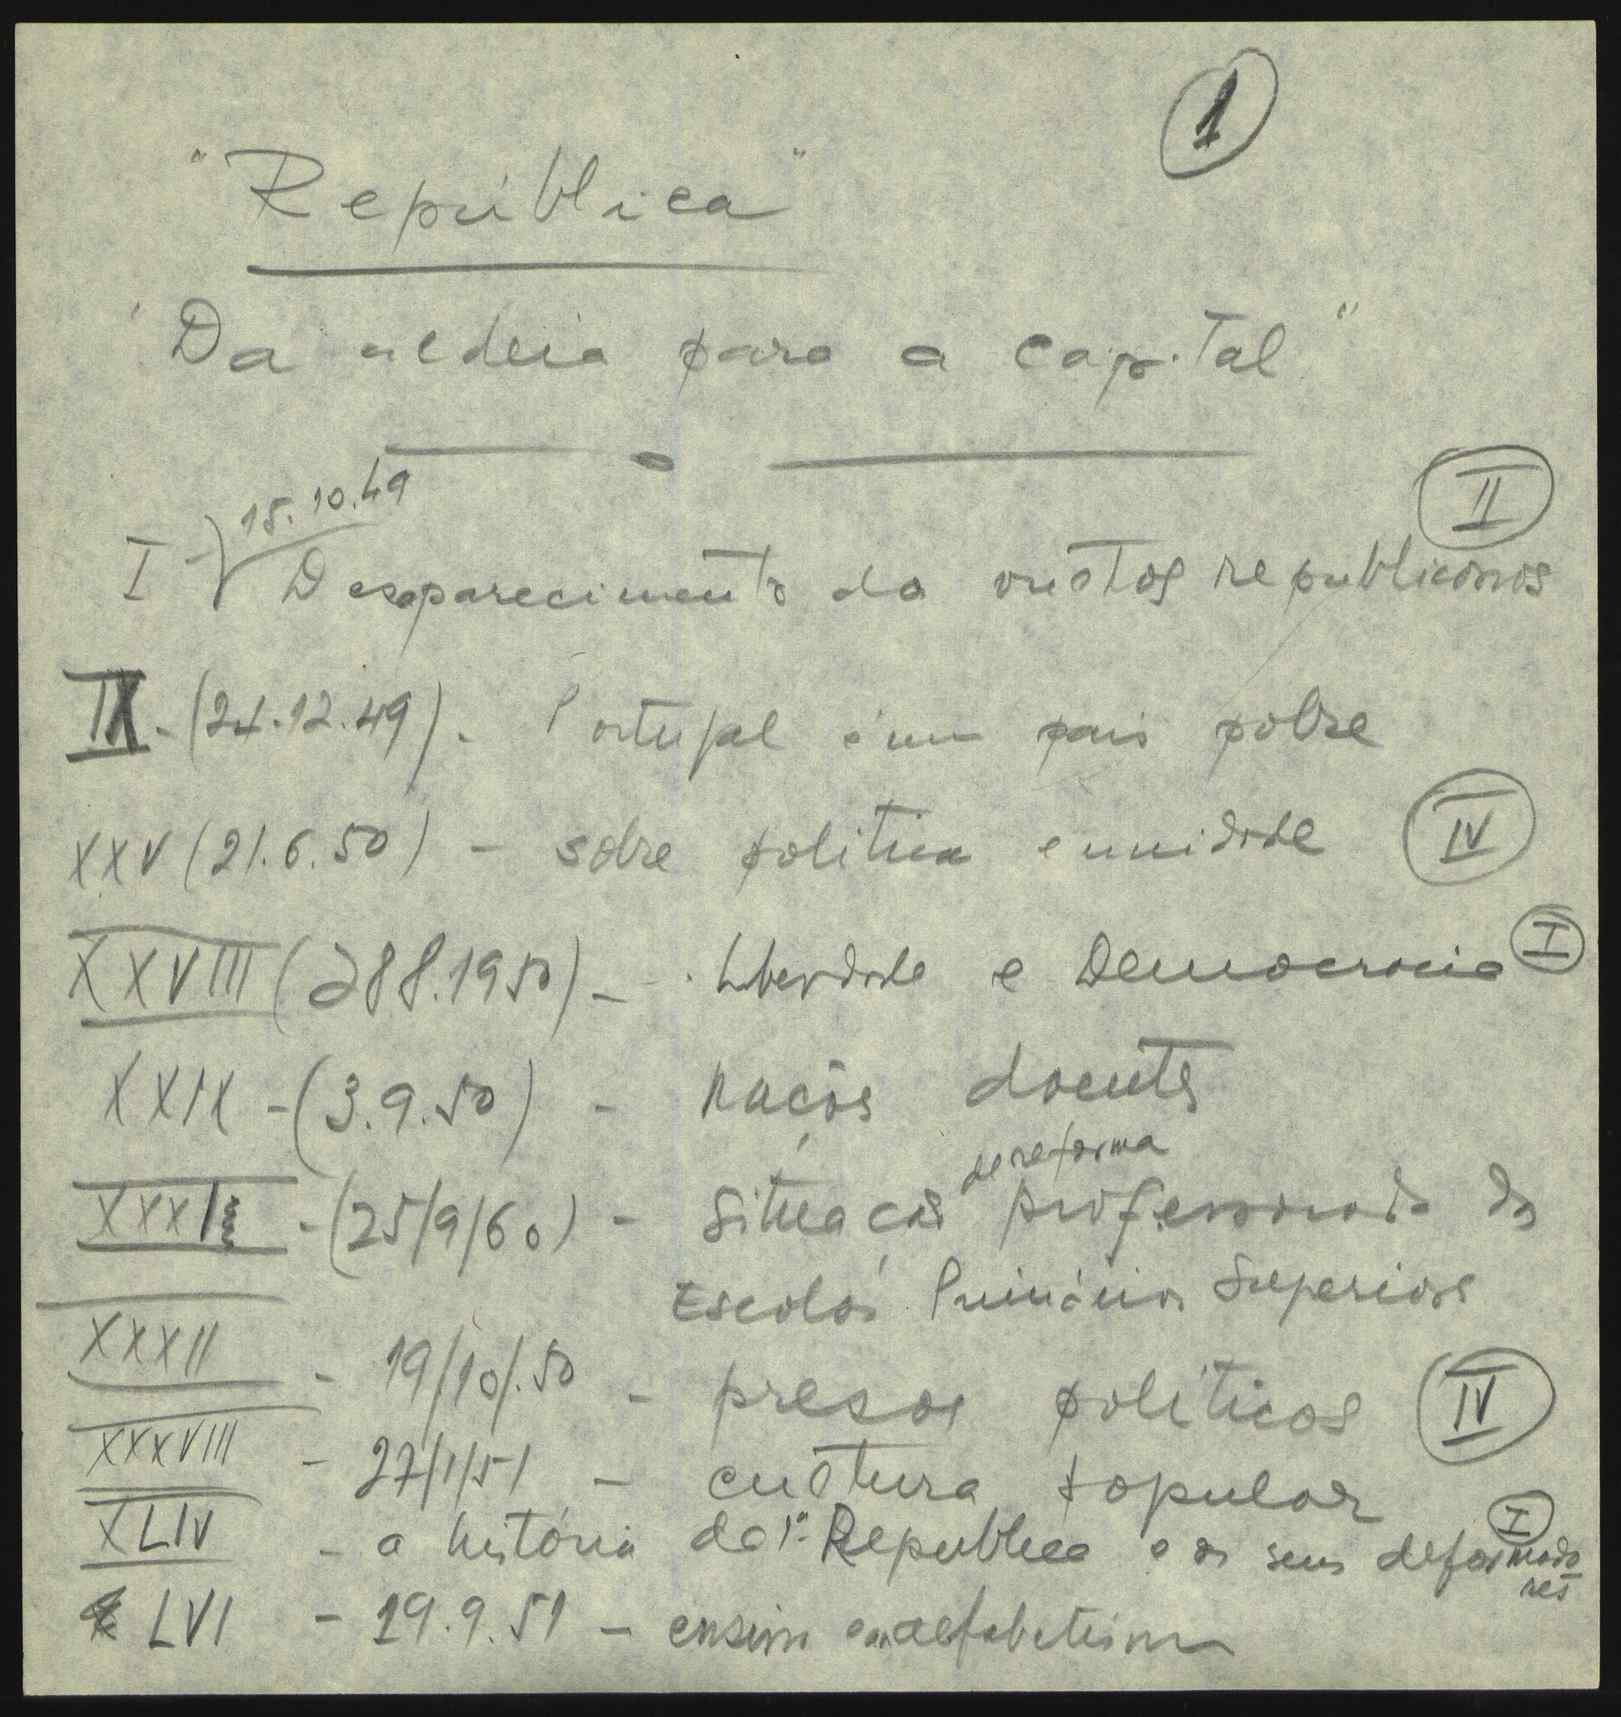 1
"República"
"Da aldeia para a capital"
II
15.10.49
I - Desaparecimento de vultos republicanos
IX - (24.12.49) - Portugal é um país pobre
XXV (21.6.50) - sobre politica e unidade IV
XXVIII (28 8.1950) - Liberdade e Democracia I
XXIX - (3.9.50) - nações doentes
de reforma
XXXI - (25/9/60) - Situação professorado das
Escolas Primárias Superiores
XXXII - 19/10/.50 - presos políticos IV
XXXVIII - 27/1/51 - cultura popular
I
XLIV - a história da 1ª Republica e os seus deformado
res
LVI - 19.9.51 - ensino e analfabetismo